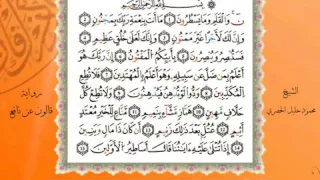 بِسْمِ اِ۬للَّهِ اِ۬لرَّحْمَٰنِ اِ۬لرَّحِيمِ
نٓ وَالْقَلَمِ وَمَا يَسْطُرُونَ مَا أَنتَ بِنِعْمَةِ رَبِّكَ بِمَجْنُونٍ
وَإِنَّ لَكَ لَأَجْرًا غَيْرَ مَمْنُونٍ وَإِنَّكَ لَعَلَىٰ خُلُقٍ عَظِيمٍ
فَسَتُبْصِرُ وَيُبْصِرُونَ بِأَييِّكُمُ الْمَفْتُونُ إِنَّ رَبَّكَ هُوَ
أَعْلَمُ بِمَن ضَلَّ عَن سَبِيلِهِ وَهُوَ أَعْلَمُ بِالْمُهْتَدِينَ فَلَا تُطِعِ
الْمُكَذِّبِينَ وَدُّوا لَوْ تُدْهِنُ فَيُدْهِنُونَ وَلَا تُطِعْ كُلَّ
حَلَّافٍ مَّهِينٍ هَمَّازٍ مَّشَّاءٍ بِنَمِيمٍ مَّنَّاعٍ لِّلْخَيْرِ مُعْتَدٍ
أَثِيمٍ عُتُلٍّ بَعْدَ ذَٰلِكَ زَنِيمٍ أَن كَانَ ذَا مَالٍ وَبَنِينَ
إِذَا تُتْلَىٰ عَلَيْهِ ءَايَاتُنَا قَالَ أَسَاطِيرُ الْأَوَّلِينَ
الشيخ
محمود خليل الحصري
رواية
قالون عن نافع